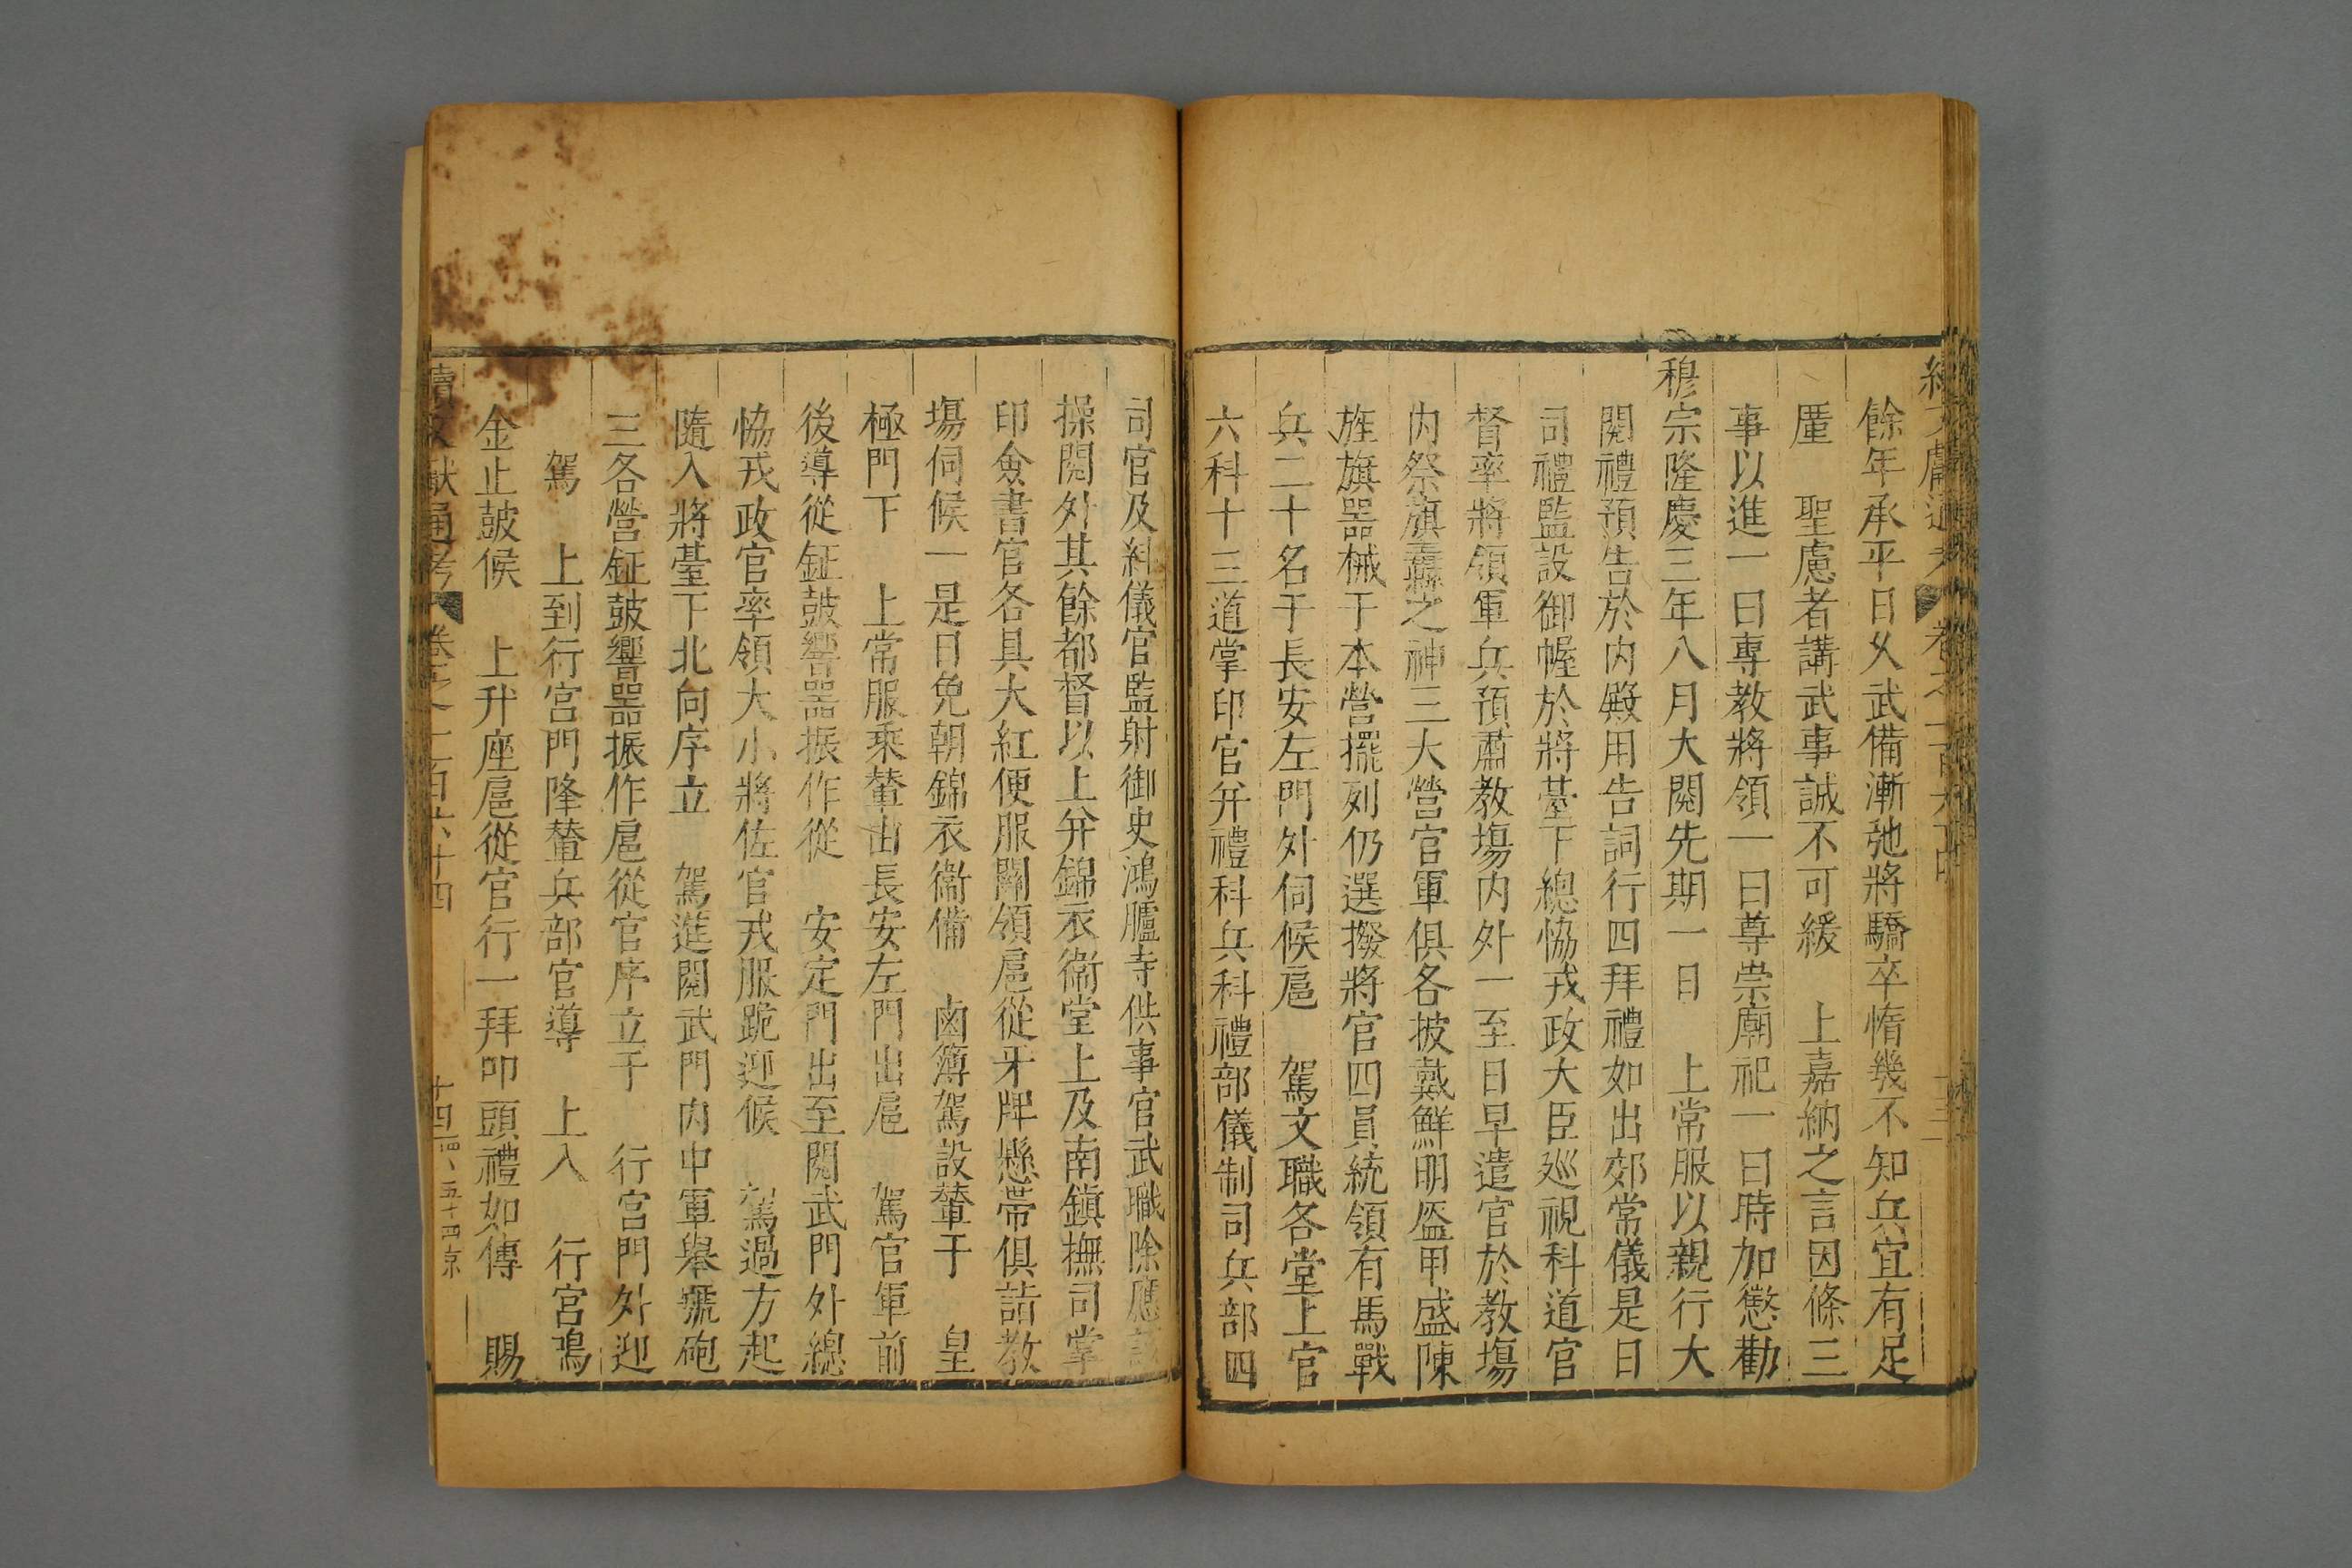 餘年承平日久武備漸弛將驕卒惰幾不知兵宜有足
厪　聖慮者講武事誠不可緩　上嘉納之言因條三
事以進一曰專教將領一曰尊崇廟祀一曰時加懲勸
穆宗隆慶三年八月大閱先期一日　上常服以親行大
閱禮預告於内殿用告詞行四拜禮如出郊常儀是日
司禮監設御幄於將臺下總協戎政大臣廵視科道官
督率將領軍兵預肅教塲内外一至日早遣官於教塲
内祭旗纛之神三大營官軍俱各披戴鮮明盔甲盛陳
旌旗器械于本營擺列仍選撥將官四員統領有馬戰
兵二十名于長安左門外伺候扈　駕文職各堂上官
六科十三道掌印官并禮科兵科禮部儀制司兵部四
司官及糾儀官監射御史鴻臚寺供事官武職除應該
操閱外其餘都督以上并錦衣衞堂上及南鎮撫司掌
印僉書官各具大紅便服關領扈從牙牌懸帶俱詣教
塲伺候一是日免朝錦衣衞備　鹵簿駕設輦于　皇
極門下　上常服乘輦出長安左門出扈　駕官軍前
後導從鉦鼓響器振作從　安定門出至閱武門外總
協戎政官率領大小將佐官戎服跪迎候　駕過方起
隨入將臺下北向序立　駕進閱武門内中軍舉號砲
三各營鉦鼓響器振作扈從官序立于　行宮門外迎
駕　上到行宮門降輦兵部官導　上入　行宮鳴
金止鼓候　上升座扈從官行一拜叩頭禮如傳　賜
續文獻通考　卷之二百六十四　十四